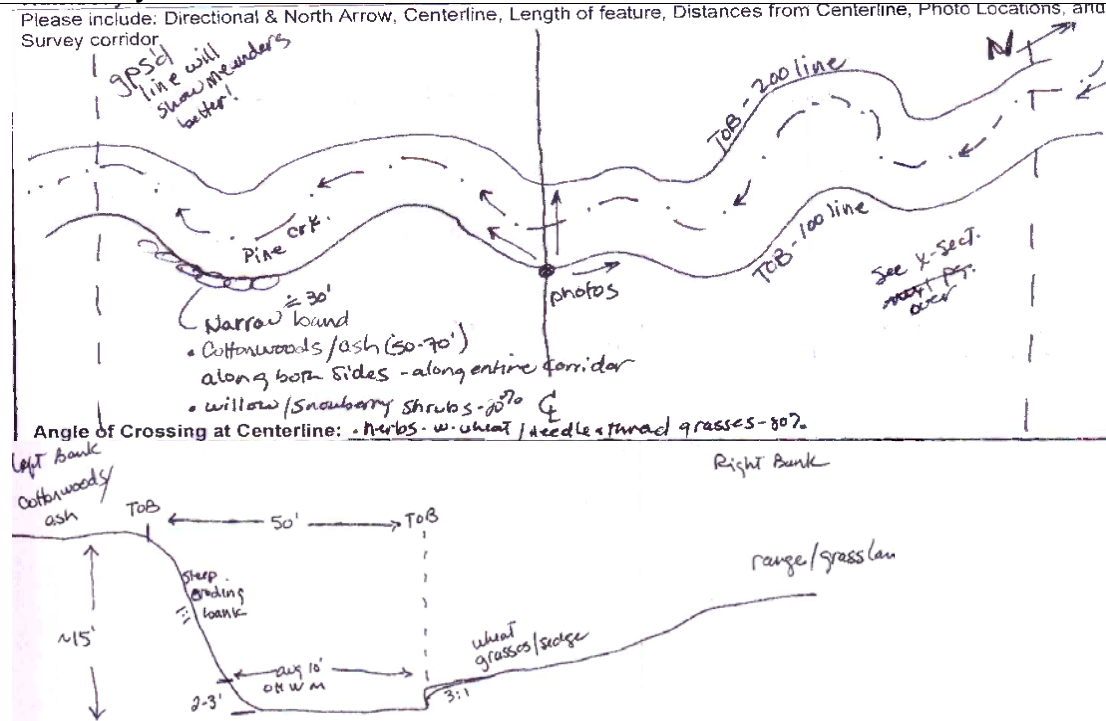 Please include: Directional & North Arrow, Centerline, Length of feature, Distances from Centerline, Photo Locations, and
Survey corridor
gps'd
line will
show meanders
better!
N
TOB - 200 line
Pine crk.
TOB - 100 line
photos
See x-sect.
over
≐ 30'
Narrow band
• Cottonwoods/ash (50-70')
along both sides - along entire corridor
• willow/Snowberry shrubs - 20%
℄
Angle of Crossing at Centerline: • herbs - w. wheat / needle & thread grasses - 80%
Left Bank
Cottonwoods/
ash
TOB
50'
TOB
Right Bank
range/grasslan
steep
eroding
bank
~15'
wheat
grasses/sedge
avg 10'
OHWM
2-3'
3:1